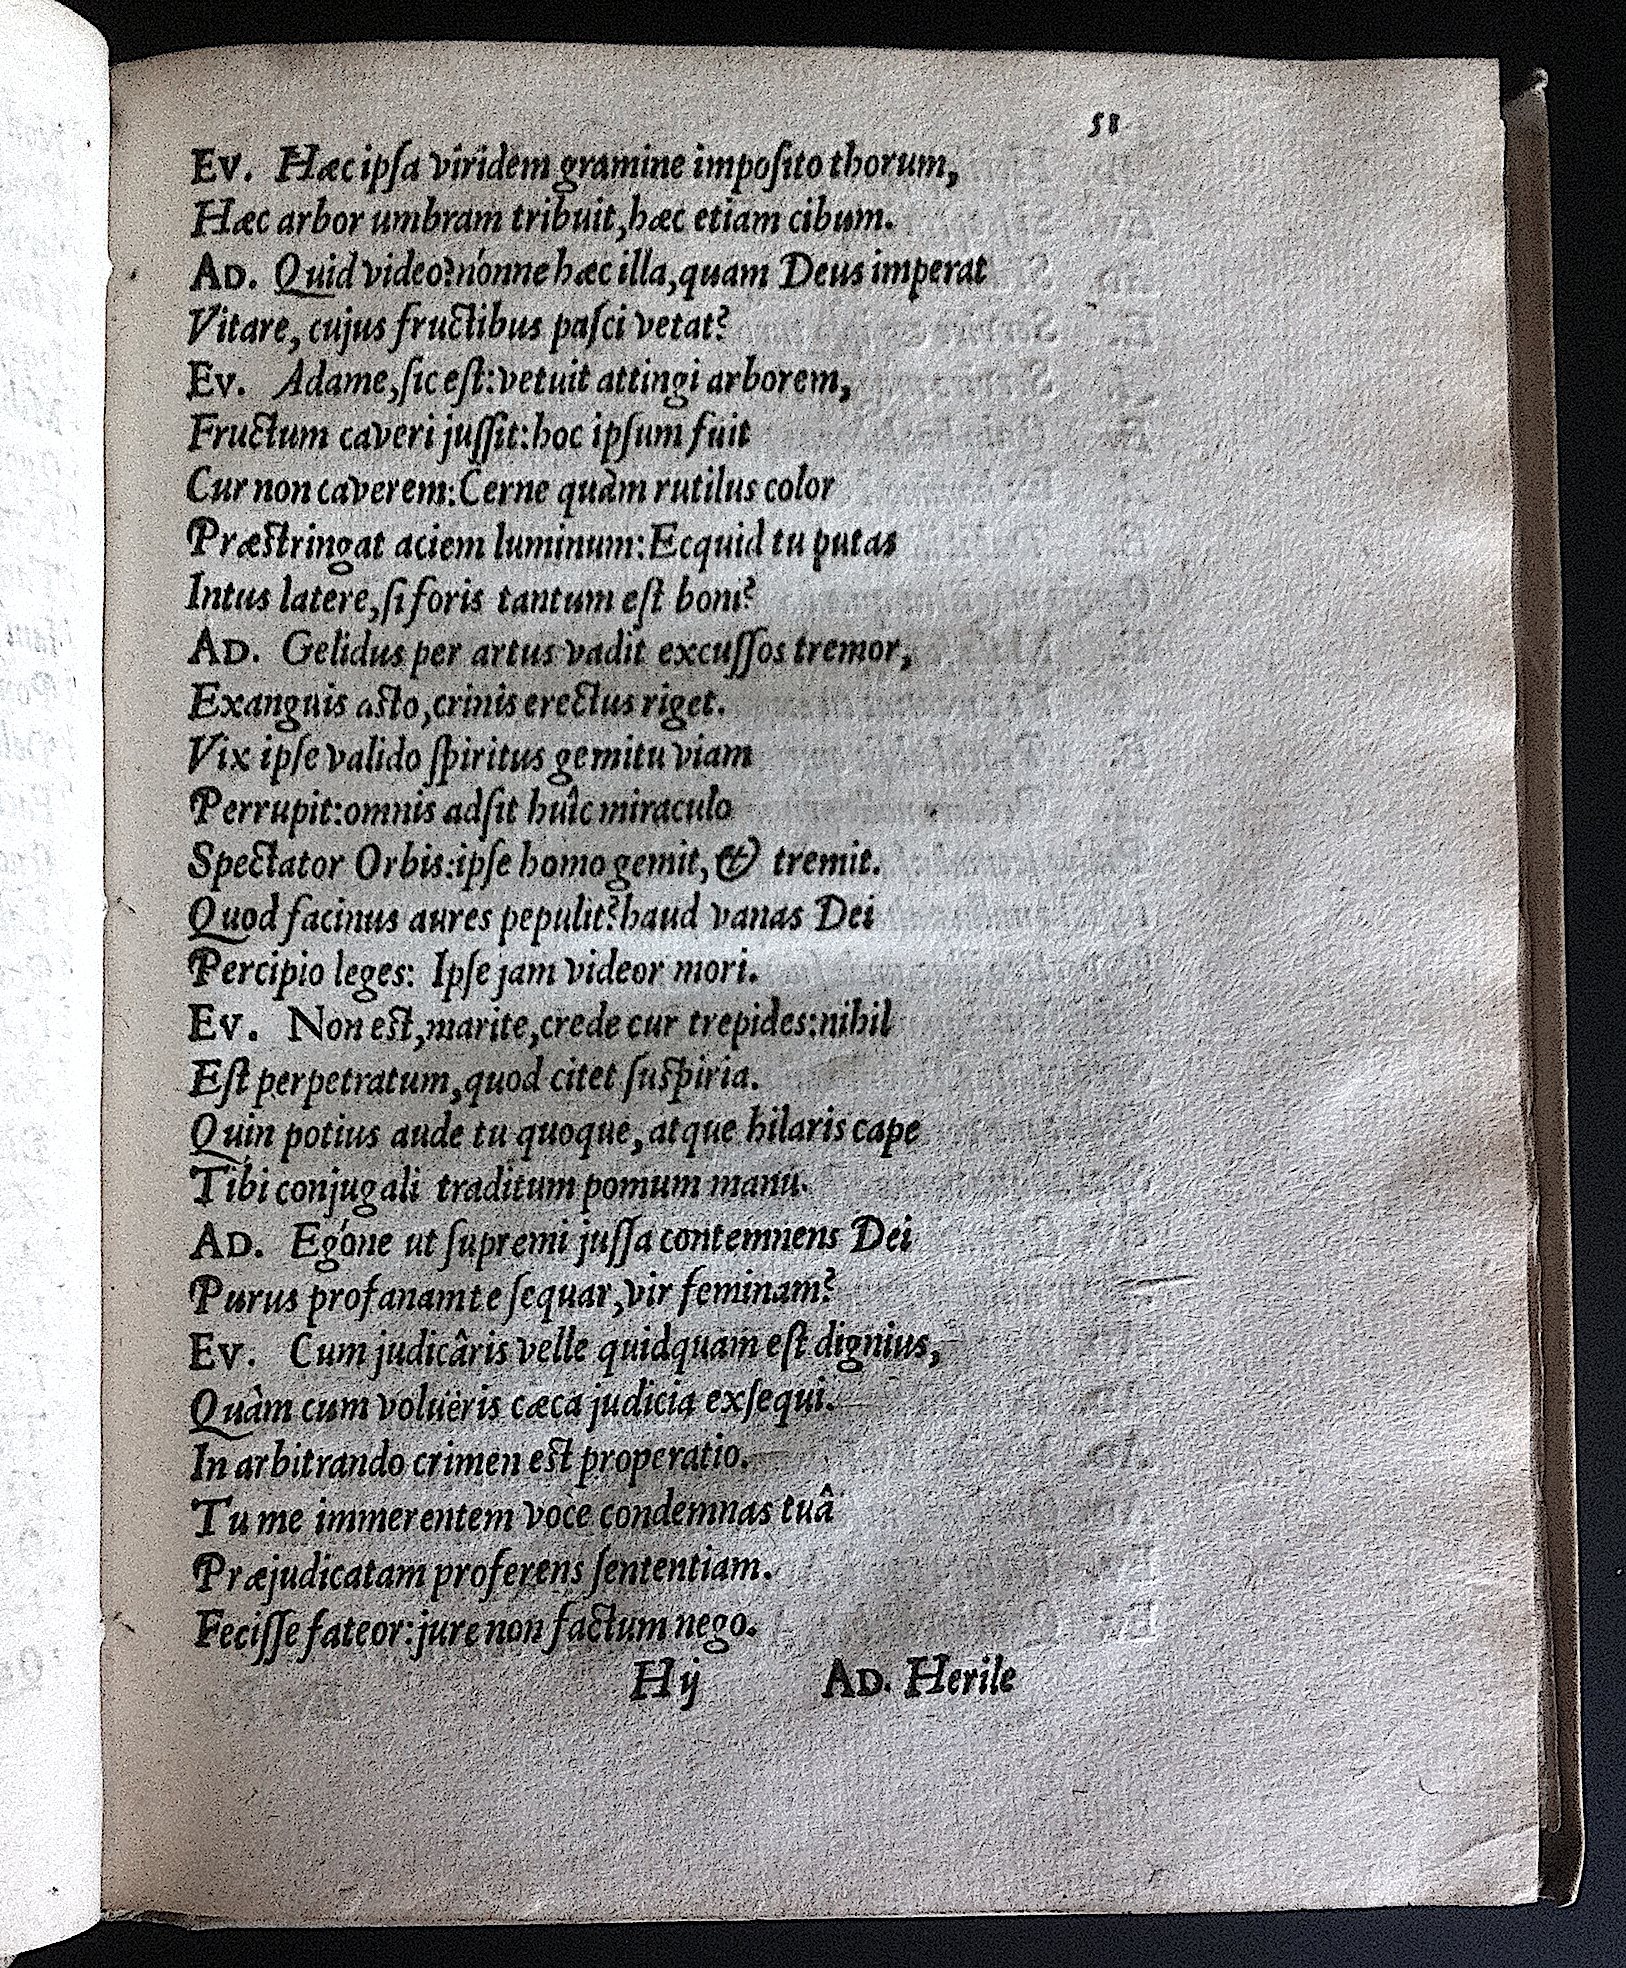 58
EV. Hæc ipſa viridem gramine impoſito thorum,
Hæc arbor umbram tribuit, hæc etiam cibum.
AD. Quid video? nónne hæc illa, quam Deus imperat
Vitare, cujus fructibus paſci vetat?
EV. Adame, ſic eſt: vetuit attingi arborem,
Fructum caveri juſſit: hoc ipſum fuit
Cur non caverem: Cerne quàm rutilus color
Præſtringat aciem luminum: Ecquid tu putas
Intus latere, ſi foris tantum eſt boni?
AD. Gelidus per artus vadit excuſſos tremor,
Exanguis aſto, crinis erectus riget.
Vix ipſe valido ſpiritus gemitu viam
Perrupit: omnis adſit huîc miraculo
Spectator Orbis: ipſe homo gemit, & tremit.
Quod facinus aures pepulit? haud vanas Dei
Percipio leges: Ipſe jam videor mori.
EV. Non eſt, marite, crede cur trepides: nihil
Eſt perpetratum, quod citet ſuſpiria.
Quin potius aude tu quoque, atque hilaris cape
Tibi conjugali traditum pomum manu.
AD. Egóne ut ſupremi juſſa contemnens Dei
Purus profanam te ſequar, vir feminam?
EV. Cum judicâris velle quidquam eſt dignius,
Quàm cum voluëris cæca judicia exſequi.
In arbitrando crimen eſt properatio.
Tu me immerentem voce condemnas tuâ
Præjudicatam proferens ſententiam.
Feciſſe fateor: jure non factum nego.
H ij AD. Herile